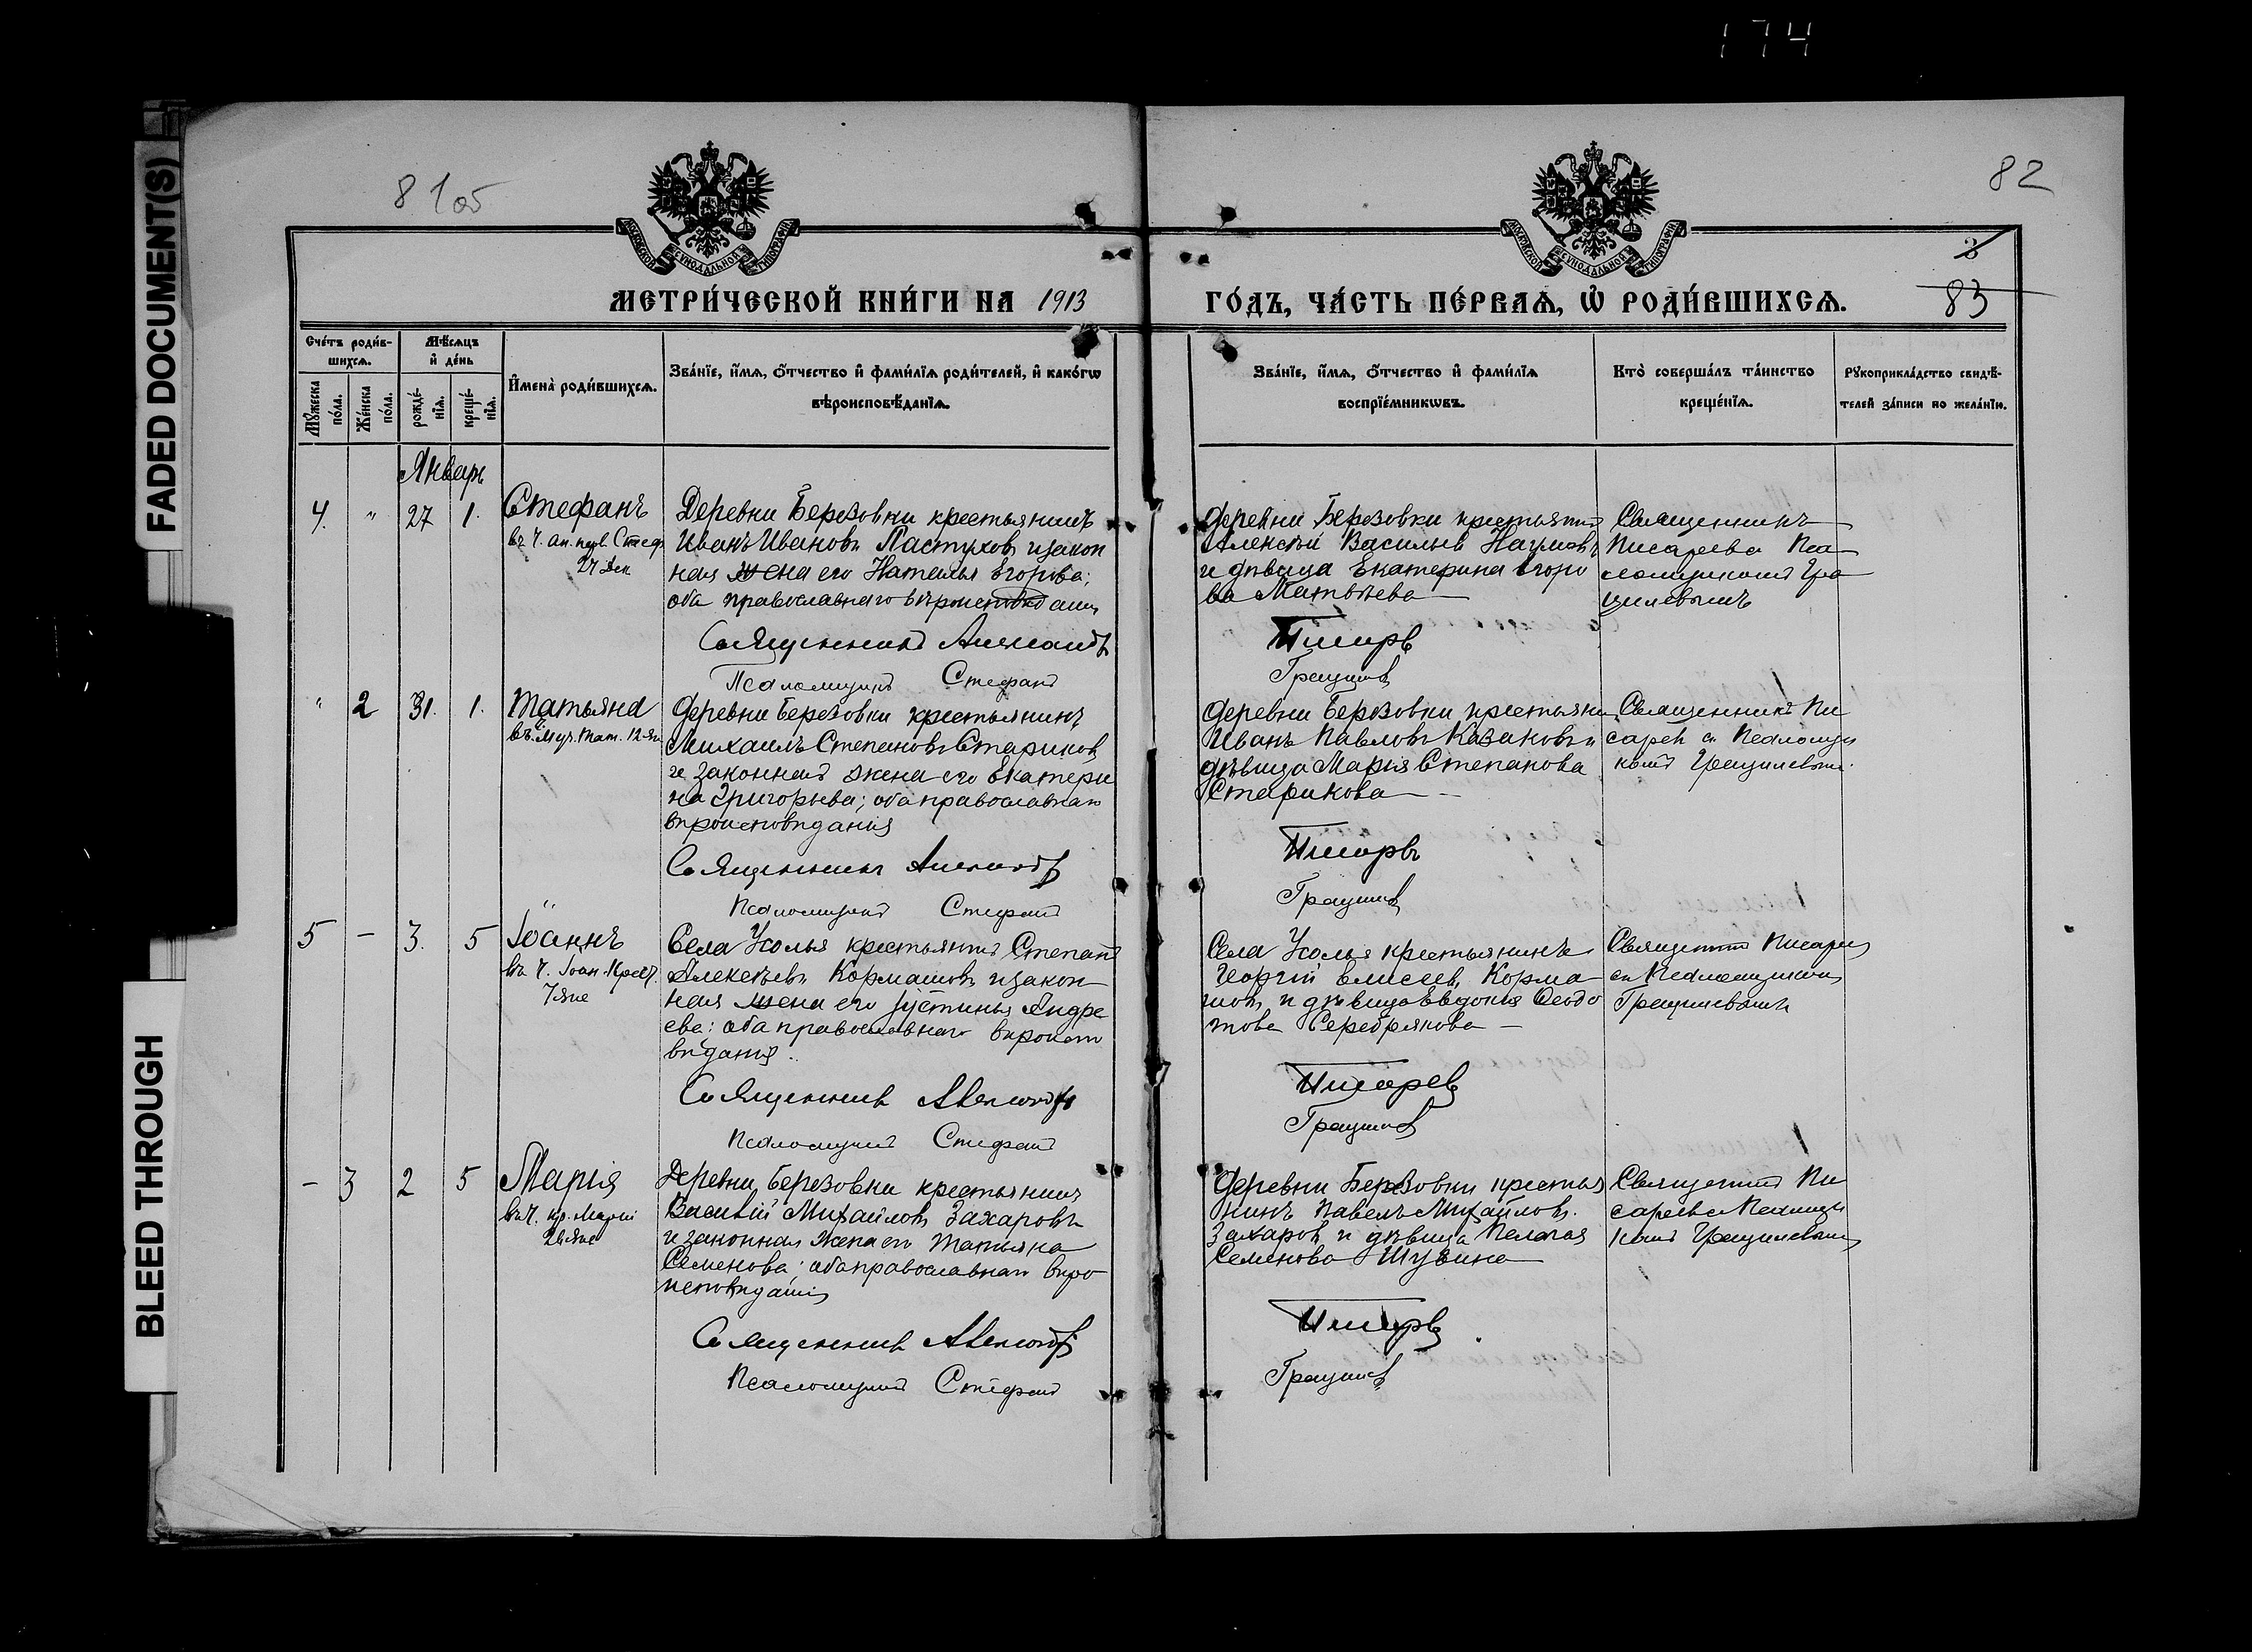 174
FADED DOCUMENT(S)
BLEED THROUGH
81об
82
МОСКОВСКОЙ СѴНОДАЛЬНОЙ ТИПОГРАФІИ
МОСКОВСКОЙ СѴНОДАЛЬНОЙ ТИПОГРАФІИ
3
83
МЕТРИ́ЧЕСКОЙ КНИ́ГИ НА 1913
ГО́ДЪ, ЧА́СТЬ ПЕ́РВАѦ, Ѡ҆ РОДИ́ВШИХСѦ.
Сче́тъ роди́в-
шихсѧ.
Мꙋ́жеска по́ла.
Же́нска по́ла.
Мѣ́сѧцъ
и҆ де́нь
рожде́-
нїѧ.
креще́-
нїѧ.
И҆мена̀ роди́вшихсѧ.
Зва́нїе, и҆́мѧ, ѻ҆́тчество и҆ фами́лїѧ роди́телей, и҆ како́гѡ
вѣроисповѣ́данїѧ.
Зва́нїе, и҆́мѧ, ѻ҆́тчество и҆ фами́лїѧ
воспрїе́мникѡвъ.
Кто̀ соверша́лъ та́инство
креще́нїѧ.
Рꙋкоприкла́дство свидѣ́-
телей за́писи по жела́нїю.
Январь
4. " 27 1. Стефанъ
въ ч. ап. перв. Стеф.
27 Дек
Деревни Березовки крестьянинъ
Иванъ Ивановъ Пастуховъ и закон
ная жена его Наталья Егорова;
оба православнаго вѣроисповѣданія
Священникъ Александръ
Псаломщикъ Стефанъ
Деревни Березовки крестьянинъ
Алексѣй Васильевъ Наумовъ
и дѣвица Екатерина Егоро
ва Матвѣева
Священникъ
Писаревъ с Пса
ломщикомъ Гра
цилевымъ
Писаревъ
" 2 31. 1. Татьяна
въ ч. муч. Тат. 12 Ян
Деревни Березовки крестьянинъ
Михаилъ Степановъ Стариковъ
и законная жена его Екатери
на Григорьева; оба православнаго
вѣроисповѣданія
Священникъ Александръ
Псаломщикъ Стефанъ
Деревни Березовки крестьянинъ
Иванъ Павловъ Казаковъ и
дѣвица Марія Степанова
Старикова
Священникъ Пи
саревъ съ Псаломщи
комъ Грацилевымъ
Писаревъ
5 – 3. 5 Іоаннъ
въ ч. Іоан. Крест.
7 Янв
Села Усолья крестьянинъ Степанъ
Алексѣевъ Кормашовъ и закон
ная жена его Іустинья Андре
ева: оба православнаго вѣроиспо
вѣданія.
Священникъ Александръ
Псаломщикъ Стефанъ
Села Усолья крестьянинъ
Георгій Елисеевъ Корма-
шовъ и дѣвица Евдокія Ѳеодо
това Серебрякова
Священникъ Писаревъ
съ Псаломщикомъ
Грацилевымъ
Писаревъ
– 3 2 5 Марія
въ ч. пр. Маріи
26 Янв
Деревни Березовки крестьянинъ
Василій Михайловъ Захаровъ
и законная жена его Татьяна
Семенова: оба православнаго вѣро
исповѣданія
Священникъ Александръ
Псаломщикъ Стефанъ
Деревни Березовки крестья
нинъ Павелъ Михайловъ
Захаровъ и дѣвица Пелагея
Семенова Шузина
Священникъ Пи
саревъ с Псаломщи
комъ Грацилевымъ
Писаревъ